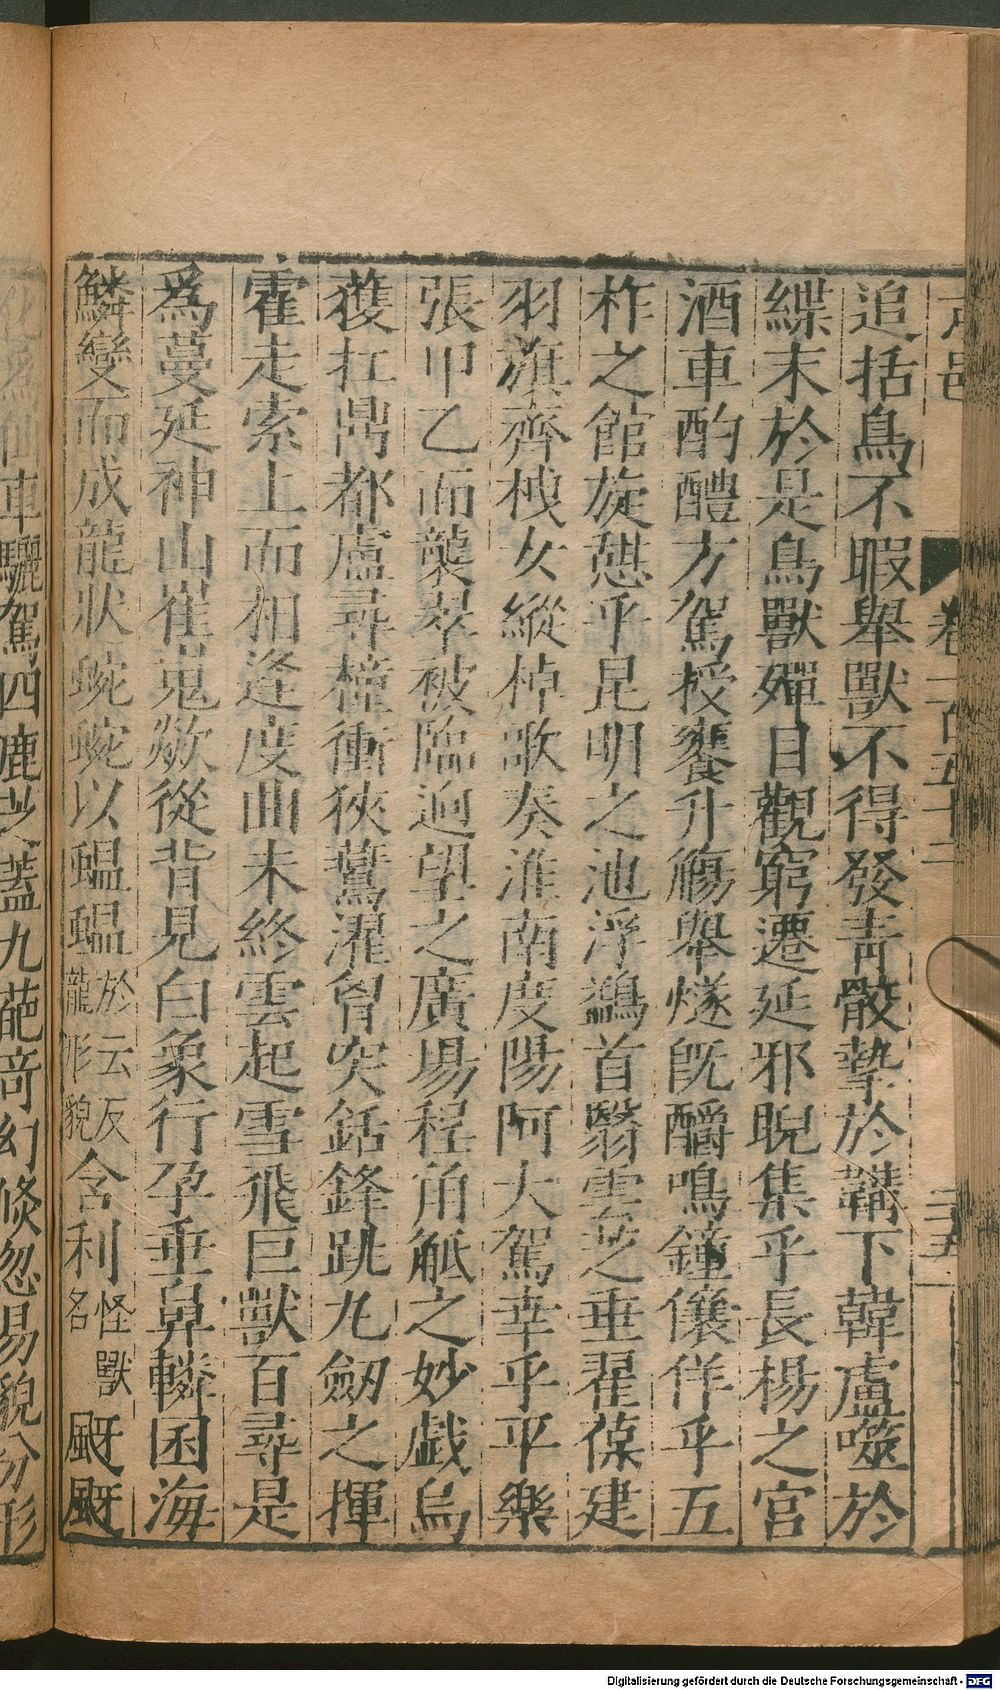 邑 卷一百五十二
追括鳥不暇舉獸不得發青骹摯於鞲下韓盧噬於
緤末於是鳥獸殫目觀窮遷延邪睨集乎長楊之宮
酒車酌醴方駕授饔升觴舉燧旣釂鳴鐘儴佯乎五
柞之館旋憇乎昆明之池浮鷁首翳雲芝垂翟葆建
羽旗齊栧女縱棹歌奏淮南度陽阿大駕幸乎平樂
張甲乙而襲翠被臨迥望之廣場程角觝之妙戯烏
獲扛鼎都盧尋橦衝狹鷰濯胷突銛鋒跳丸劒之揮
霍走索上而相逢度曲未終雲起雪飛巨獸百尋是
爲蔓延神山崔嵬欻從背見白象行孕垂鼻轔囷海
鱗變而成龍狀蜿蜿以蝹蝹於云反龍形貌含利怪獸名颬颬
車驪駕四鹿芝蓋九葩奇幻倐忽易貌分形
Digitalisierung gefördert durch die Deutsche Forschungsgemeinschaft - DFG